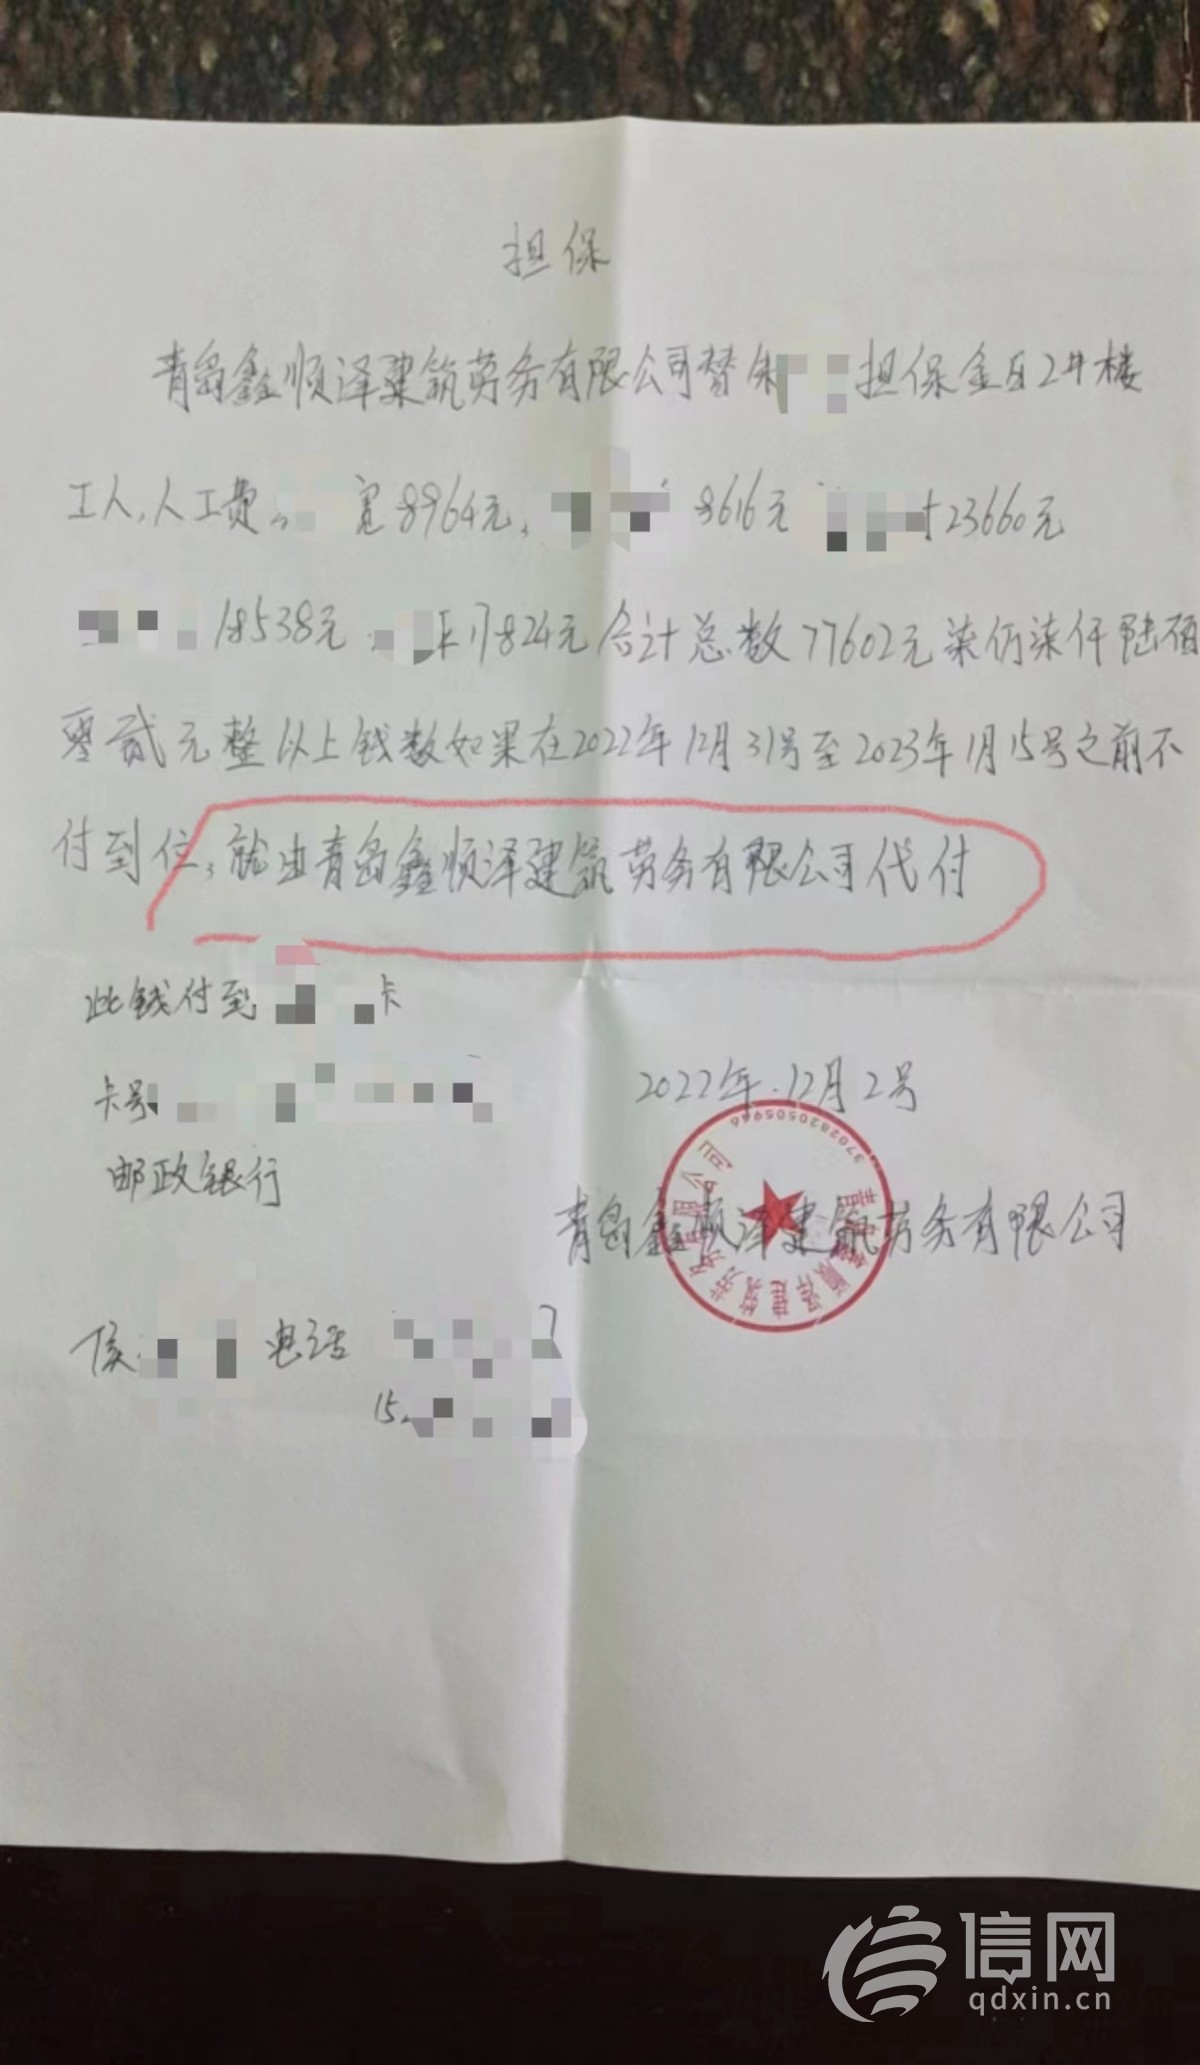 担保
青岛鑫顺泽建筑劳务有限公司替朱 担保金石2#楼
工人,人工费, 宽8964元, 8616元 23660元
18538元 17824元合计总数77602元柒仟柒仟陆佰
零贰元整以上钱数如果在2022年12月31号至2023年1月15号之前不
付到位,就由青岛鑫顺泽建筑劳务有限公司代付
此钱付到 卡
卡号
邮政银行
2022年.12月2号
青岛鑫顺泽建筑劳务有限公司
青岛鑫顺泽建筑劳务有限公司
3702820505966
侯 电话 7
15.
信网
qdxin.cn